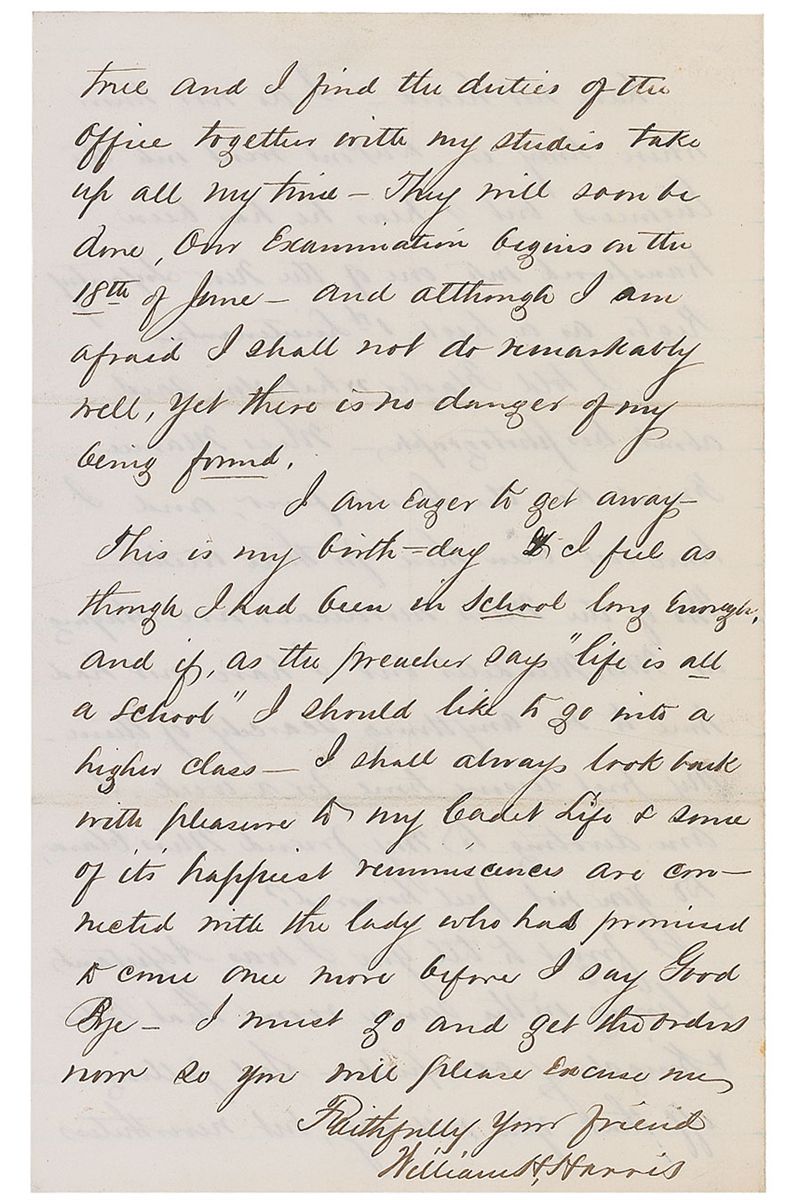 true and I find the duties of the
Office together with my studies take
up all my time — They will soon be
done, Our Examination begins on the
18th of June — and although I am
afraid I shall not do remarkably
well, yet there is no danger of my
being found.
I am eager to get away —
This is my birth=day & I feel as
though I had been in school long enough,
and if, as the preacher says "life is all
a school" I should like to go into a
higher class — I shall always look back
with pleasure to my Cadet Life & some
of its happiest reminiscences are con—
nected with the lady who has promised
to come once more before I say Good
Bye — I must go and get the orders
now so you will please excuse me
Faithfully Your friend
William H. Harris